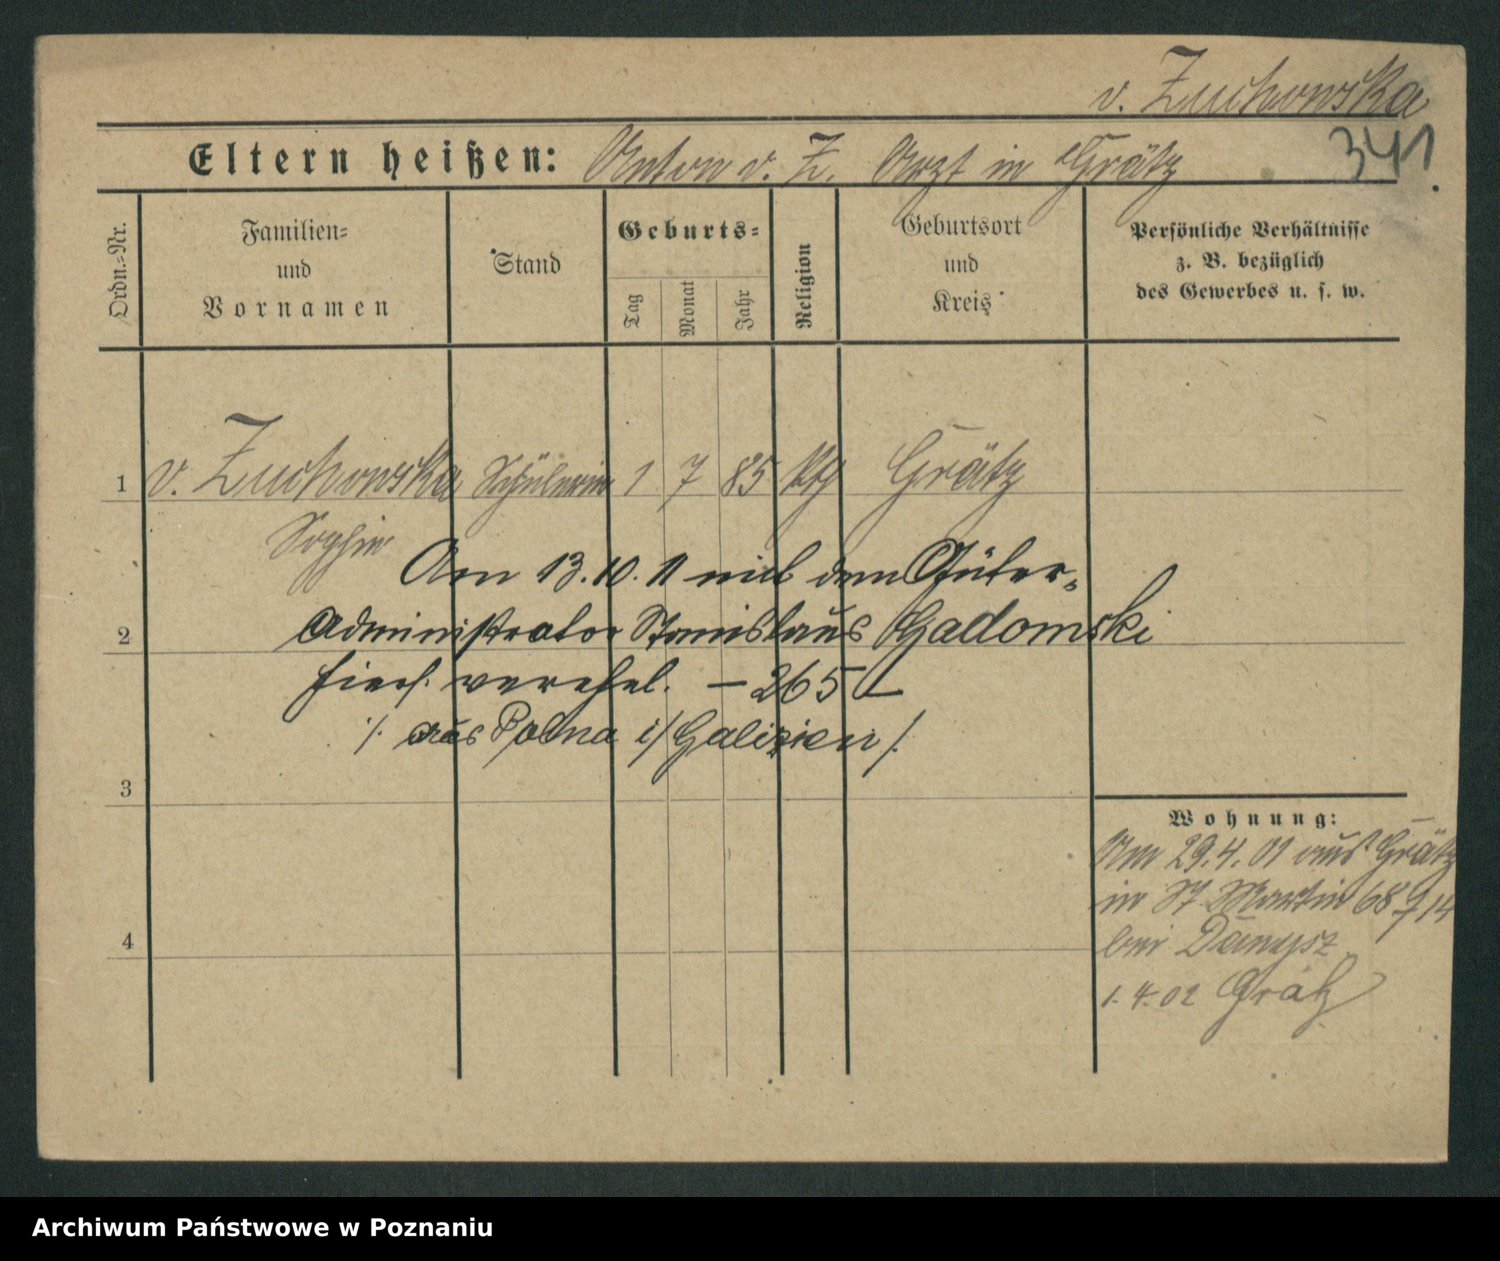 v. Zuchowska
Eltern heißen: Anton v. Z. Arzt in Grätz
341.
Ordn.-Nr.
Familien-
und
Vornamen
Stand
Geburts-
Tag
Monat
Jahr
Religion
Geburtsort
und
Kreis
Persönliche Verhältnisse
z. B. bezüglich
des Gewerbes u. s. w.
1 v. Zuchowska Schülerin 1 7 85 kth Grätz
Sophie
Am 13.10.11 mit dem Güter-
2 administrator Stanislaus Gadomski
hier verehel. – 265 –
/. aus Polna i/Galizien /.
3
4
Wohnung:
Am 29.4.01 aus Grätz
in St. Martin 68 14
bei Danysz
1.4.02 Grätz
Archiwum Państwowe w Poznaniu